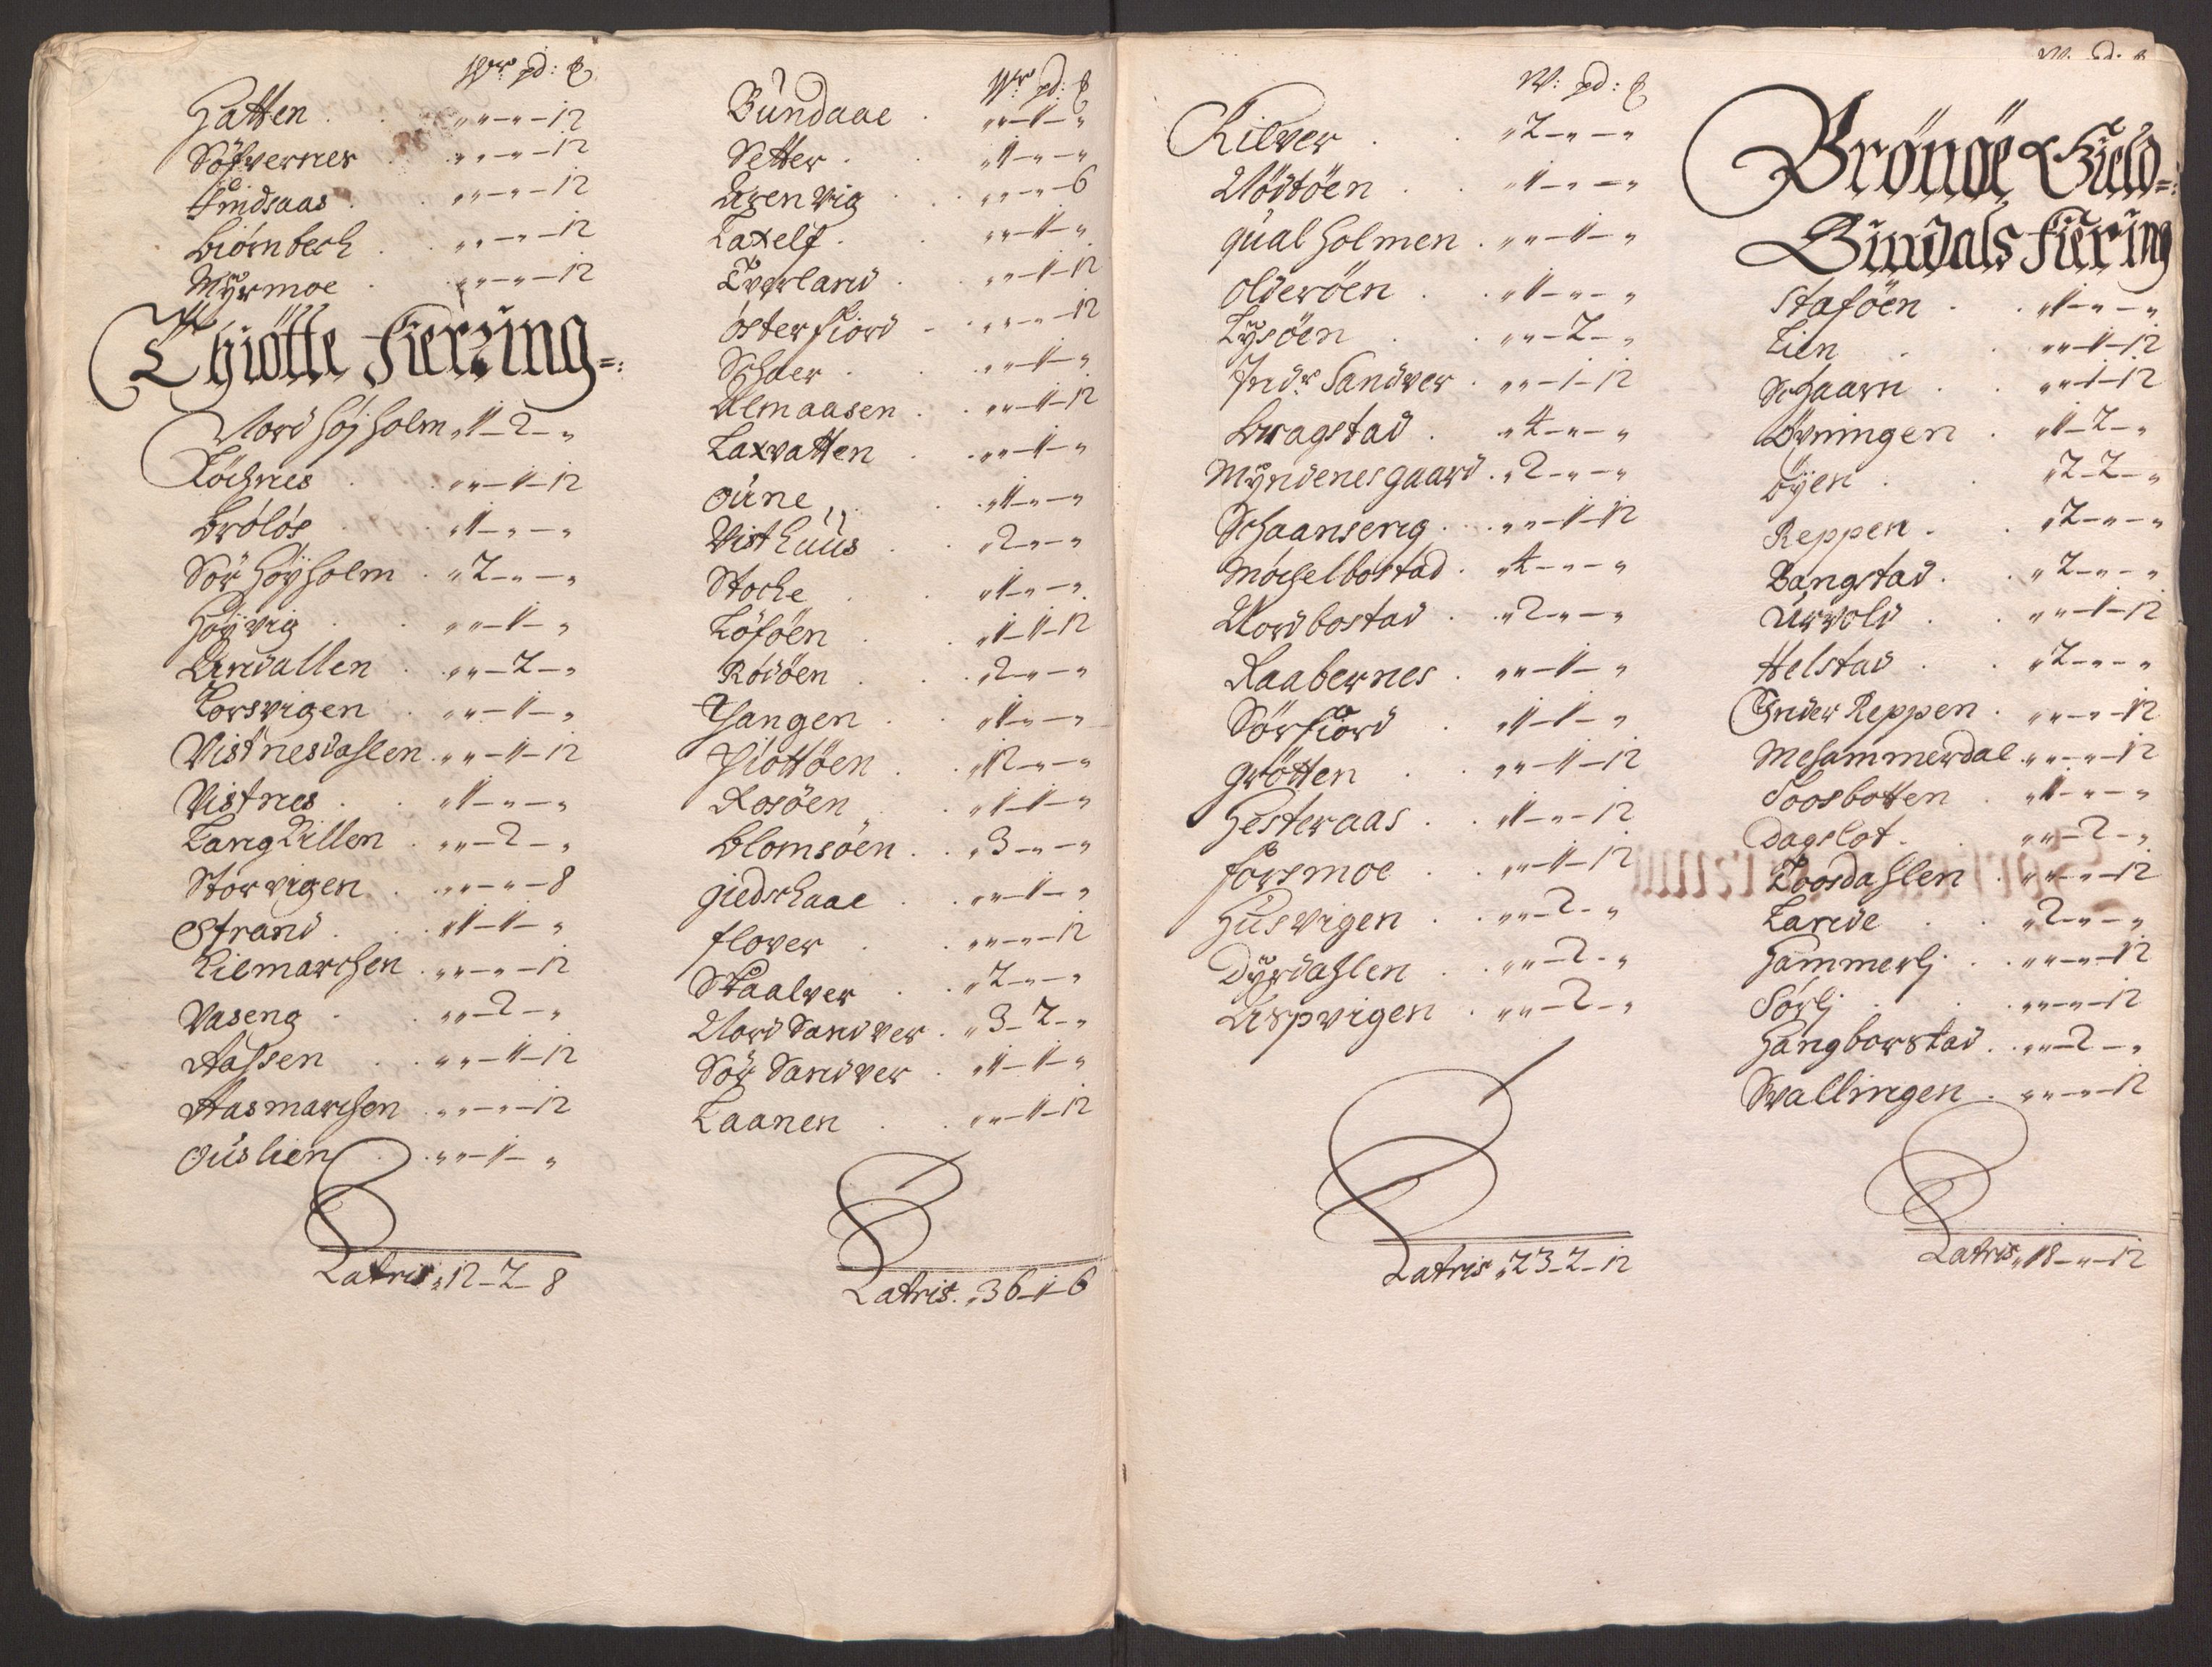 Wr pd: ℔
Hatten . „ „ - „ - 12
Söfvernes . „ „ - „ - 12
Tindsaas . „ „ - „ - 12
Biörnbech . „ „ - „ - 12
Myrmoe . „ „ - „ - 12
Thiötte Fierring
Nord Höjholm „ 1 - 2 - „
Röchnes . „ „ - 1 - 12
Brölös . „ 1 - „ - „
Sör Höyholm . „ 2 - „ - „
Höyvig . „ „ - 1 - „
Andallen . „ „ - 2 - „
Torsvigen . „ „ - 1 - „
Vistnesdahlen . „ „ - 1 - 12
Vistnes . „ 1 - „ - „
Langhillen . „ „ - 2 - „
Storvigen . „ „ - „ - 8
Strand . „ 1 - 1 - „
Liemarchen . „ „ - „ - 12
Vaseng . „ „ - 2 - „
Aassen . „ „ - 1 - 12
Aasmarchen . „ „ - „ - 12
Ouslien . „ „ - 1 - „
Latris „ 12 - 2 - 8
Wr pd: ℔
Bundaae . „ „ - 1 - „
Setter . „ 1 - „ - „
Urenvig . „ „ - „ - 6
Laxelf . „ „ - 1 - „
Tverland . „ „ - 1 - 12
Österfiord - „ „ - „ - 12
Schaer . „ „ - 1 - „
Almaasen . „ „ - 1 - 12
Laxvatten . „ „ - 1 - „
Oune . „ 1 - „ - „
Visthuus . „ 2 - „ - „
Stoche . „ 1 - „ - „
Löföen . „ 1 - 1 - 12
Rödöen . „ 2 - „ - „
Tangen . „ 1 - „ - „
Tiottöen . „ 12 - „ - „
Rosöen . „ 1 - 1 - „
Blomsöen . „ 3 - „ - „
Giedschaae . „ „ - 1 - „
Flover . „ „ - „ - 12
Skaalver . „ 2 - „ - „
Nord Sandver . „ 3 - 2 - „
Sör Sandver . „ 1 - 1 - „
Laanen . „ „ - 1 - 12
Latris . „ 36 - 1 - 6
W: pd: ℔
Kilver . „ 2 - „ - „
Nödtöen . „ 1 - „ - „
Qualholmen . „ „ - 1 - „
Olderöen . „ 1 - „ - „
Lysöen . „ „ - 2 - „
Indr Sandver . „ „ - 1 - 12
Bragstad . „ 4 - „ - „
Myndenesgaard . „ 2 - „ - „
Schaanseng . „ „ - 1 - 12
Möchelbostad . „ 4 - „ - „
Nordbostad . „ 2 - „ - „
Raabernes . „ „ - 1 - „
Sörfiord . „ 1 - 1 - „
Grötten . „ „ - 1 - 12
Hesteraas . „ 1 - „ - 12
Forsmoe . „ „ - 1 - 12
Husvigen . „ „ - 2 - „
Dyrdahlen . „ „ - 2 - „
Aspvigen . „ „ - 2 - „
Latris „ 23 - 2 - 12
W: pd:
Brönöe Gield
Bindals Fiering
Staföen . „ 1 - „ - „
Lien . „ „ - 1 - 12
Schaarn . „ „ - 1 - 12
Övningen . „ 1 - 2 - „
Öyen . „ 2 - 2 - „
Reppen . „ 2 - „ - „
Bangstad . „ 2 - „ - „
Urvold . „ „ - 1 - 12
Helstad . „ 2 - „ - „
Inder Reppen . „ „ - „ - 12
Mehammerdal . „ „ - „ - 12
Toosbotten . „ 1 - „ - „
Dagslot . „ „ - 2 - „
Toosdahlen . „ „ - „ - 12
Lande . „ 2 - „ - „
Hammerlj . „ „ - „ - 12
Sörlj . „ „ - „ - 12
Hangborstad . „ „ - 2 - „
Svallingen . „ „ - „ - 12
Latris „ 18 - „ - 12